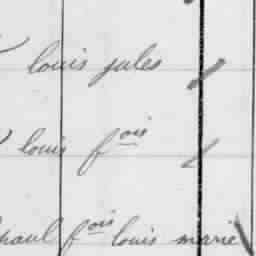 louis jules
louis fois
paul fois louis marie